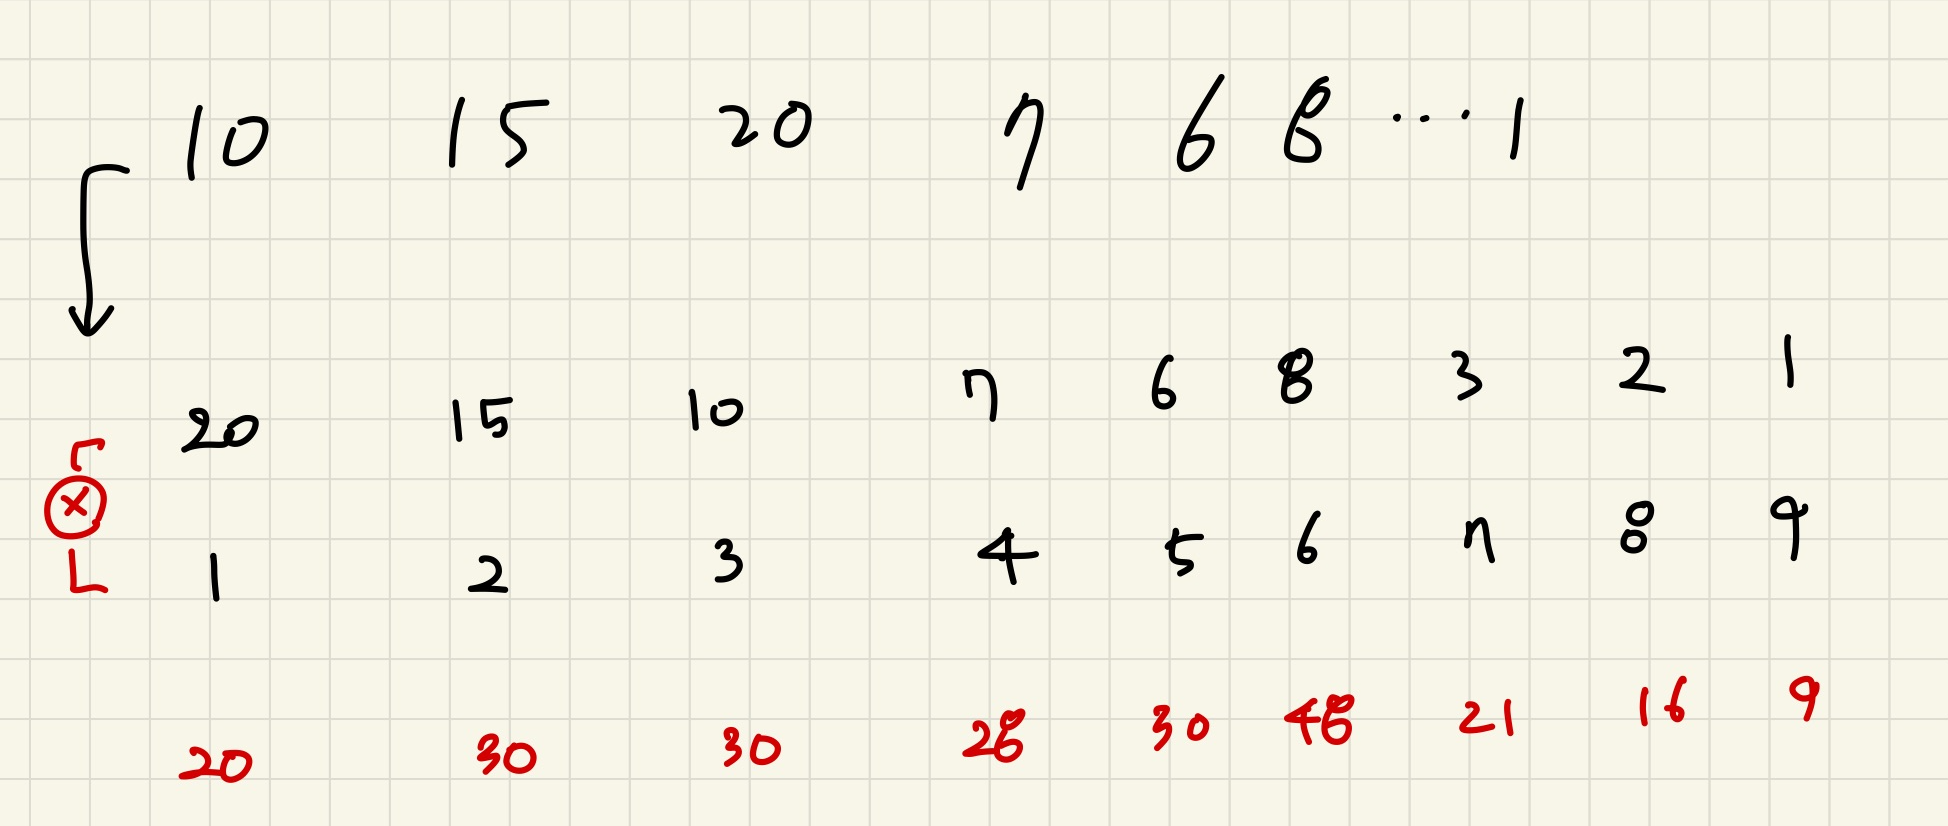 10 15 20 7 6 8 ... 1
20 15 10 7 6 8 3 2 1
×
1 2 3 4 5 6 7 8 9
20 30 30 28 30 48 21 16 9